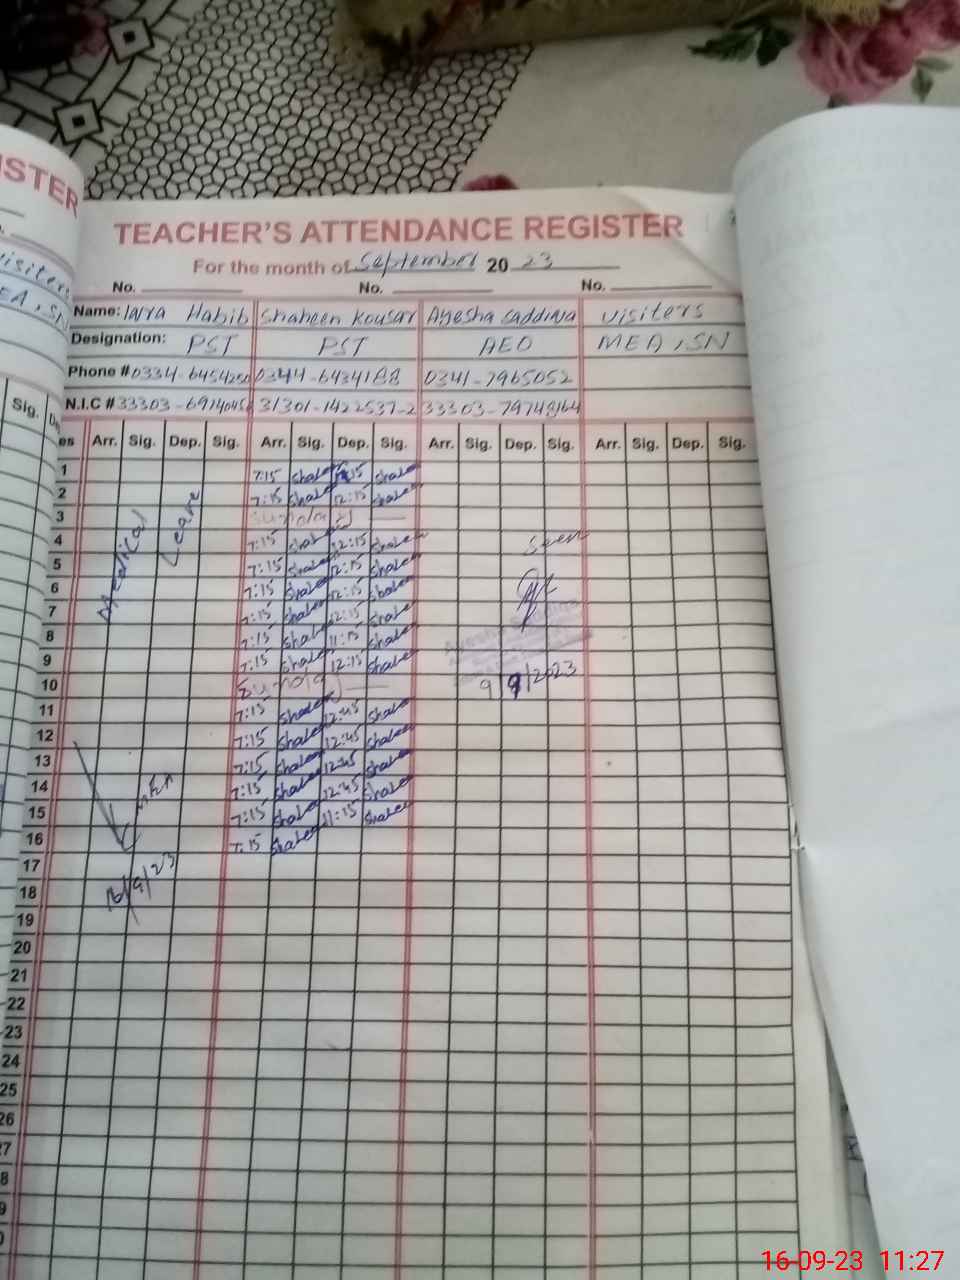 ISTER
TEACHER'S ATTENDANCE REGISTER
For the month of September 20 23
No. No. No.
Name: Habib Shaheen Kousar Ayesha Saddiqa Visiters
Designation: PST PST AEO MEA, SN
Phone # 0334-6454250 0344-6434188 0341-7965052
N.I.C # 33303-6974045 31301-1422537-2 33303-79748164
Sig.
es Arr. Sig. Dep. Sig. Arr. Sig. Dep. Sig. Arr. Sig. Dep. Sig. Arr. Sig. Dep. Sig.
1 7:15 Shaheen 12:15 Shaheen
2 7:15 Shaheen 12:15 Shaheen
3 Sunday
4 7:15 Shaheen 12:15 Shaheen Seen
5 7:15 Shaheen 12:15 Shaheen
6 7:15 Shaheen 12:15 Shaheen
7 7:15 Shaheen 12:15 Shaheen
8 7:15 Shaheen 11:15 Shaheen
9 7:15 Shaheen 12:15 Shaheen
10 Sunday 9/9/2023
11 7:15 Shaheen 12:45 Shaheen
12 7:15 Shaheen 12:45 Shaheen
13 7:15 Shaheen 12:45 Shaheen
14 7:15 Shaheen 12:45 Shaheen
15 7:15 Shaheen 11:15 Shaheen
16 7:15 Shaheen
Medical Leave
MEA
16/9/23
Ayesha Saddiqa
17
18
19
20
21
22
23
24
25
26
16-09-23 11:27